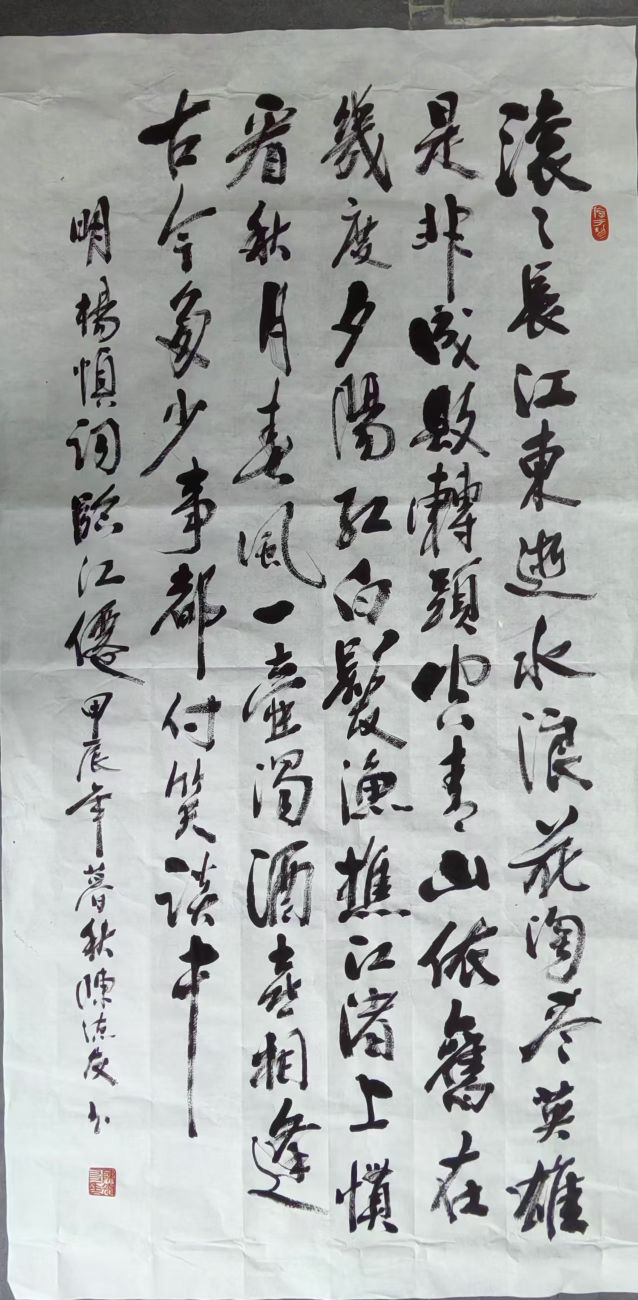 滾〻長江東逝水浪花淘尽英雄
是非成敗轉頭空青山依舊在
幾度夕陽紅白髮漁樵江渚上慣
看秋月春風一壺濁酒喜相逢
古今多少事都付笑談中
明楊慎词臨江僊甲辰年暮秋陳志友书